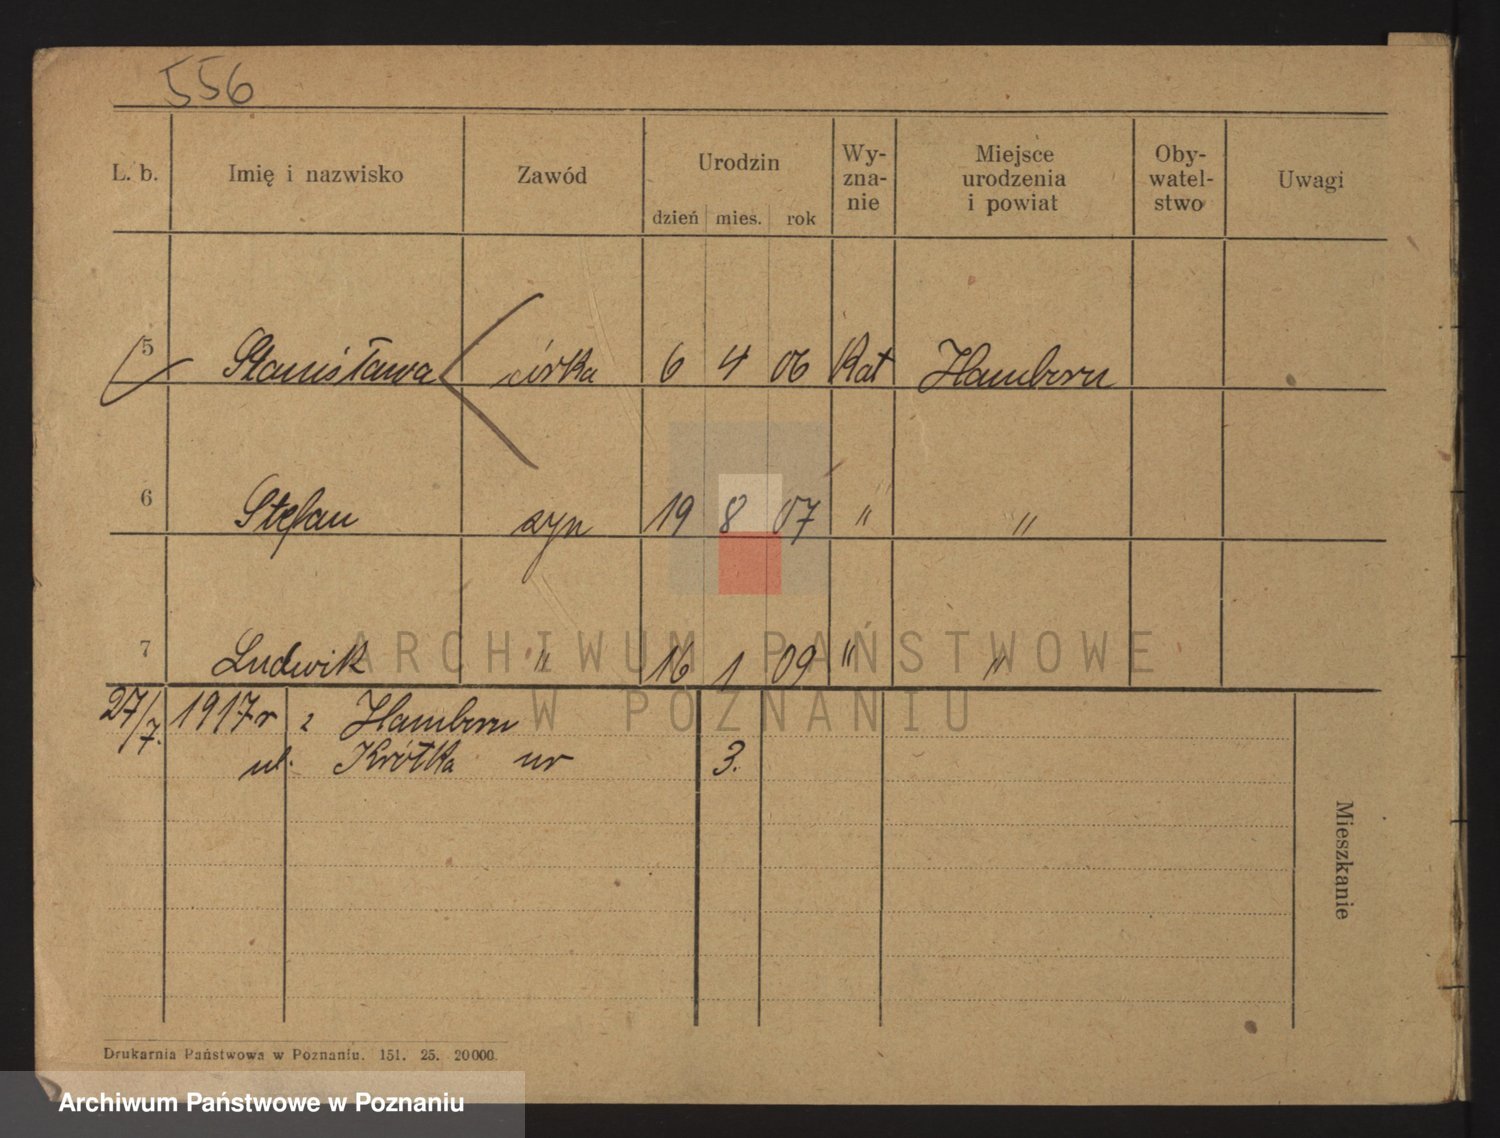 556
L. b. Imię i nazwisko Zawód Urodzin Wy- zna- nie Miejsce urodzenia i powiat Oby- watel- stwo Uwagi
dzień mies. rok
5 Stanisława córka 6 4 06 Kat Hamborn
6 Stefan syn 19 8 07 " "
7 Ludwik " 16 1 09 " "
ARCHIWUM PAŃSTWOWE
W POZNANIU
27/7. 1917 r z Hamborn
ul. Krótka nr 3.
Mieszkanie
Drukarnia Państwowa w Poznaniu. 151. 25. 20000.
Archiwum Państwowe w Poznaniu